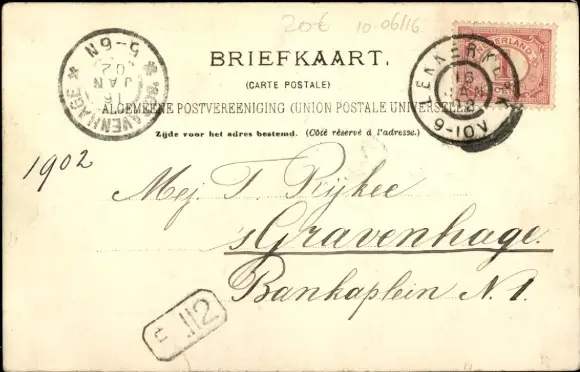 20€ 10-06/16
BRIEFKAART.
(CARTE POSTALE)
ALGEMEENE POSTVEREENIGING (UNION POSTALE UNIVERSELLE)
Zijde voor het adres bestemd. (Côté réservé à l'adresse.)
'S GRAVENHAGE
16
JAN
02
5-6N
NEDERLAND
LEKKERKERK
16
JAN
9-10V
1902
Mej. T. Rijkee
's Gravenhage.
Bankaplein N. 1.
112